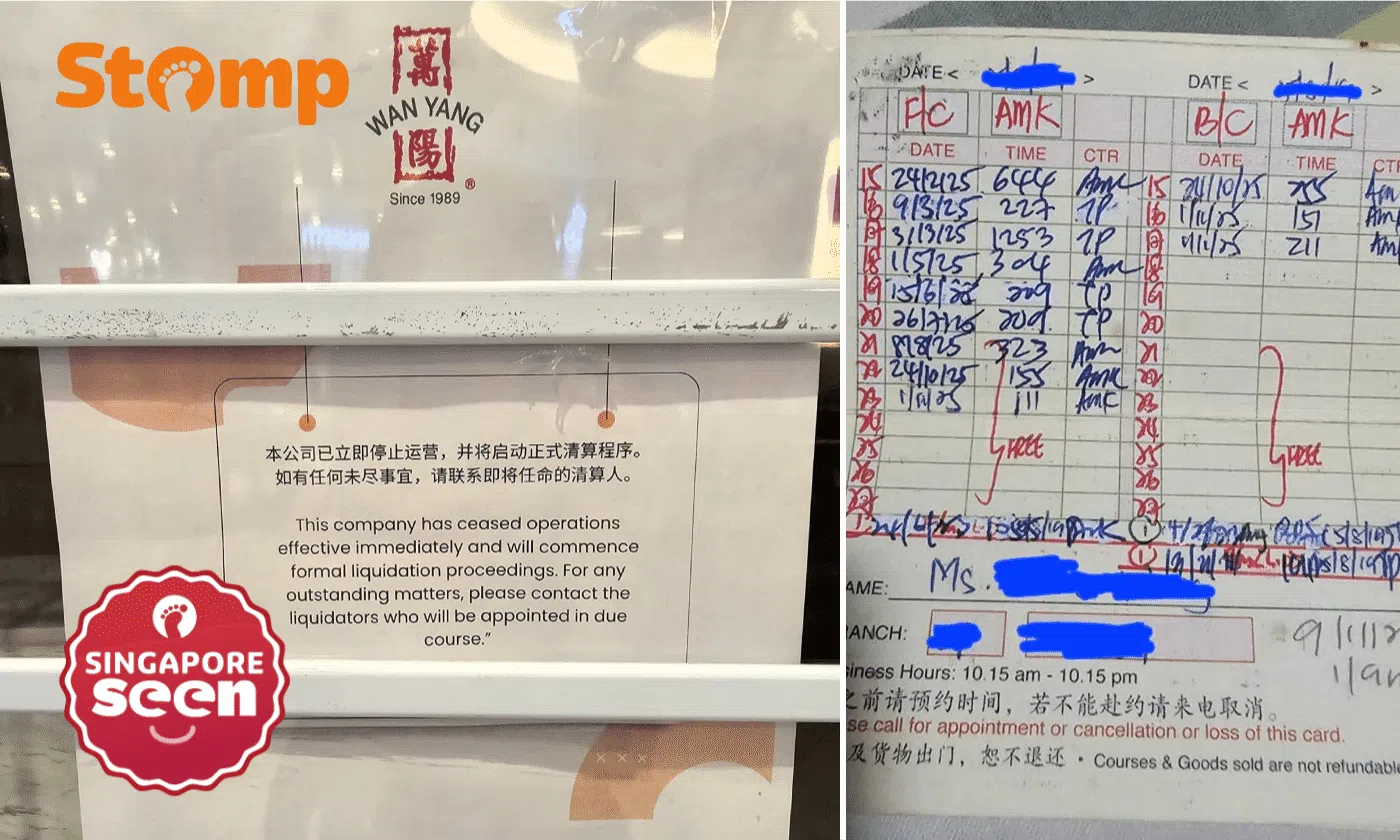 Stomp
萬
WAN YANG
陽
®
Since 1989
本公司已立即停止运营，并将启动正式清算程序。
如有任何未尽事宜，请联系即将任命的清算人。
This company has ceased operations
effective immediately and will commence
formal liquidation proceedings. For any
outstanding matters, please contact the
liquidators who will be appointed in due
course.”
SINGAPORE
seen
DATE < > DATE < >
F/C AMK B/C AMK
DATE TIME CTR DATE TIME CT
15 24/2/25 644 AMK 15 24/10/25 255 Am
9/3/25 227 TP 1/11/25 151 Am
31/3/25 1253 TP 211 Am
18 1/5/25 304 Amk 18
19 15/6/25 209 TP 19
20 26/7/25 209 TP 20
21 8/8/25 323 Amk 21
22 24/10/25 155 AMK 22
23 1/11/25 111 AMK 23
24 24
25 FREE 25 FREE
26 26
27 27
AME: Ms.
RANCH:
siness Hours: 10.15 am - 10.15 pm
之前请预约时间，若不能赴约请来电取消。
se call for appointment or cancellation or loss of this card.
及货物出门，恕不退还 • Courses & Goods sold are not refundable